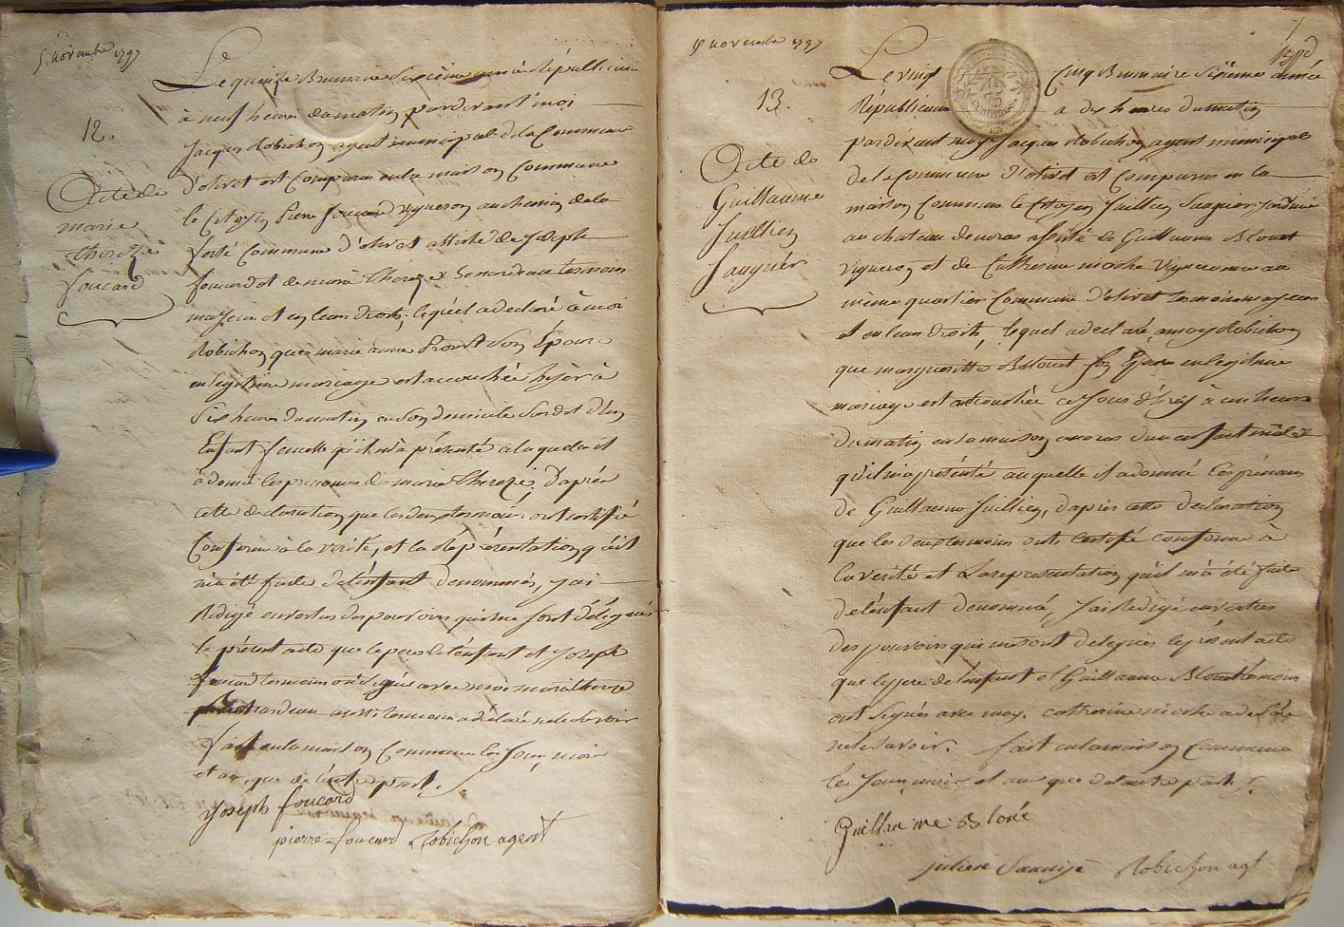 5 novembre 1797
12.
Acte de
marie
thereze
foucard
Le quinze Brumaire Sixieme année Républicaine
à neuf heures du matin pardevant moi
Jacques Robichon agent municipal de la Commune
d'olivet est Comparu en la maison Commune
le Citoyen Pierre foucard vigneron au chemin de la
ferté Commune d'olivet assisté de Joseph
foucard et de marie Thereze temoins
majeurs et en leurs droits, lequel a declaré à moi
Robichon que marie anne Son Epouse
en legitime mariage est accouchée hyer à
Six heures du matin en Son domicile Susdit d'un
Enfant femelle qu'il m'a présenté à laquelle il
à donné les prenoms de marie Thereze, D'après
cette declaration que les deux temoins ont certifié
Conforme à la verité, et la Représentation qu'il
m'a été faite de l'enfant denommée, j'ai
Redigé en vertu des pouvoirs qui me sont délegués
le présent acte que le pere de l'enfant et Joseph
foucard temoins ont Signés avec moi marie thereze
aussi temoin a déclaré ne le Savoir
fait en la maison Commune les Jour, mois
et an que de l'autre part.
Joseph foucard
pierre foucard Robichon agent
9 novembre 1797
13.
Acte de
Guillaume
Juillien
Saugér
7
Le vingt Cinq Brumaire Sixieme année
Républicaine à dix heures du matin
pardevant moy Jacques Robichon agent municipal
de la Commune d'olivet est Comparu en la
maison Commune le Citoyen Juillien
au chateau de assisté de Guillaume Blouet
vigneron et de Catherine nicole vigneronne au
même quartier Commune d'olivet temoins majeurs
et en leurs droits, lequel a declaré, a moy Robichon
que marguerite Blouet Son Epouse en legitime
mariage est accouchée ce Jour d'huy à heures
du matin en Sa maison d'un enfant mâle
qu'il m'a présenté auquelle il a donné les prénoms
de Guillaume Juillien, d'après cette declaration
que les deux temoins ont Certifié conforme à
la verité et La representation qu'il m'a été faite
de l'enfant denommé, J'ai Redigé en vertu
des pouvoirs qui me sont delegués le présent acte
que le pere de l'enfant et Guillaume Blouet temoin
ont Signés avec moy. Catherine nicole a declaré
ne le Savoir. fait en la maison Commune
les Jour, mois et an que d'autre part.
Guillaume Bloué
julien Saugé Robichon agt